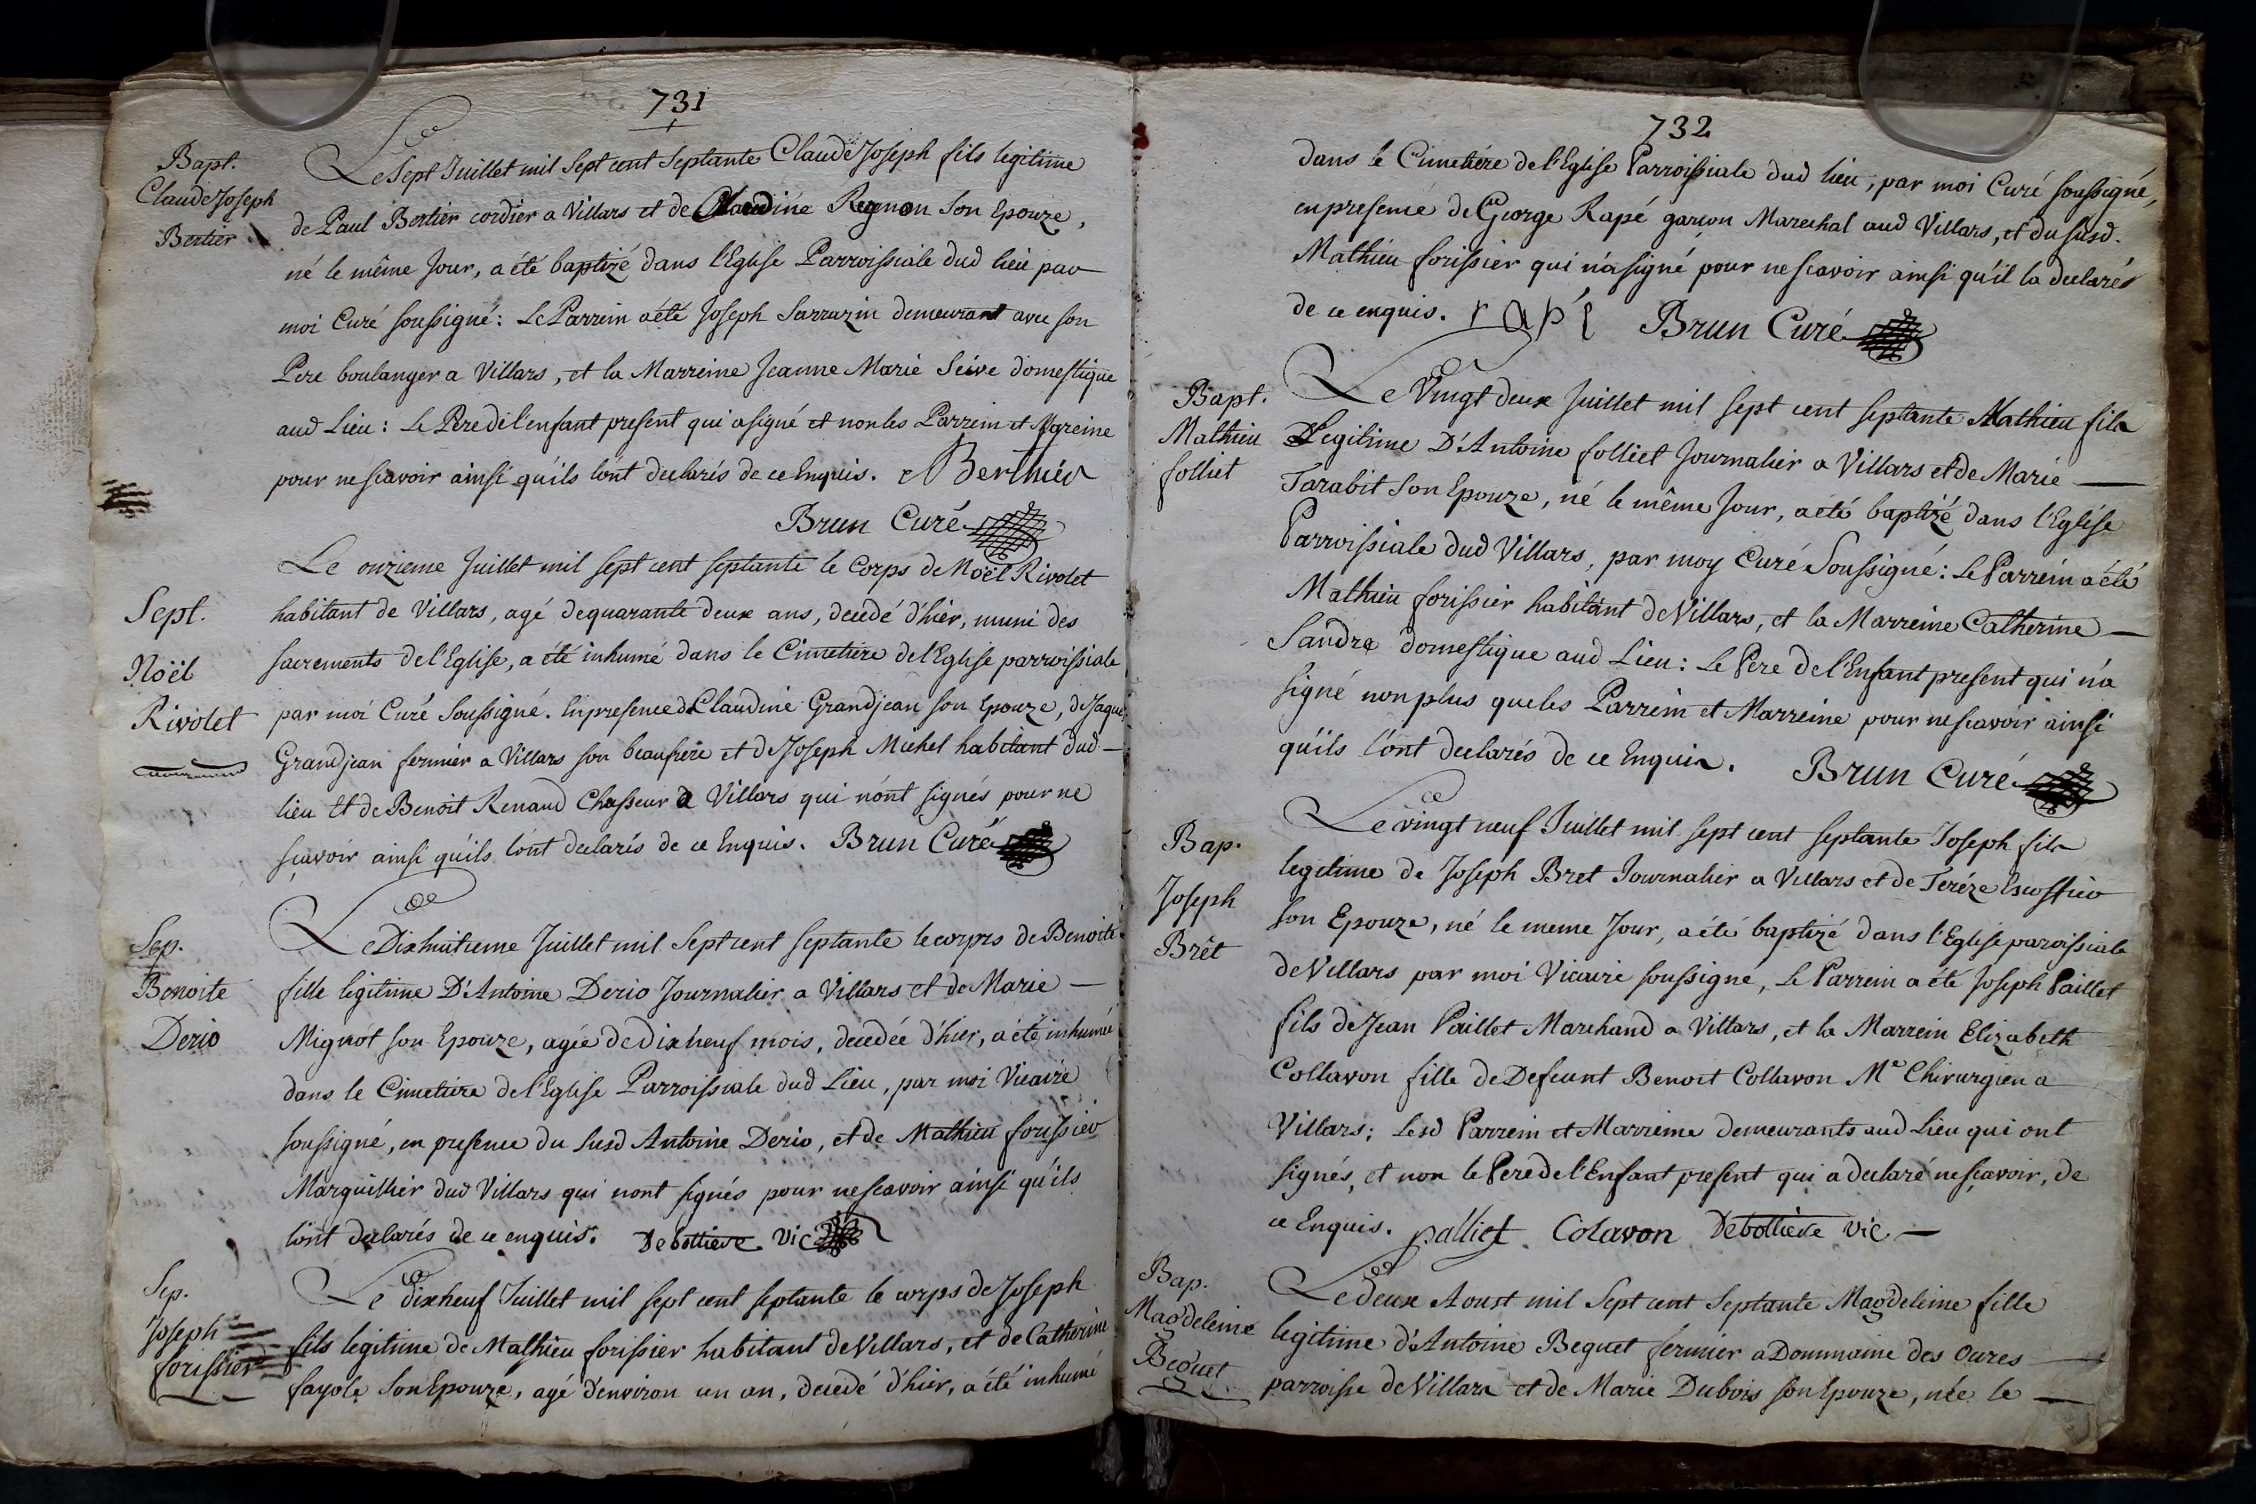 731
Bapt.
Claude Joseph
Bertier
Le sept Juillet mil sept cent septante Claude Joseph fils legitime
de Paul Bertier cordier a Villars et de Claudine Regnon son Epouze,
né le même Jour, a été baptizé dans l'Eglise Parroissiale dud lieu par
moi Curé soussigné: Le Parrein a été Joseph Sarrazin demeurant avec son
Pere boulanger a Villars, et la Marreine Jeanne Marie Seive domestique
aud Lieu: Le Pere de l'enfant present qui a signé et non les Parrein et Mareine
pour ne scavoir ainsi qu'ils l'ont declarés de ce Enquis. Berthier
Brun Curé
Sept.
Noël
Rivolet
Le onzieme Juillet mil sept cent septante le Corps de Noël Rivolet
habitant de Villars, agé de quarante deux ans, decedé d'hier, muni des
sacrements de l'Eglise, a été inhumé dans le Cimetiere de l'Eglise parroissiale
par moi Curé Soussigné. En presence de Claudine Grandjean son Epouze, de Jaque
Grandjean fermier a Villars son beaufrere et de Joseph Michel habitant dud
lieu Et de Benoit Renaud Chasseur a Villars qui n'ont signés pour ne
sçavoir ainsi qu'ils l'ont declarés de ce Enquis. Brun Curé
Sep.
Benoite
Derio
Le Dixhuitieme Juillet mil sept cent septante le corps de Benoite
fille legitime D'Antoine Derio Journalier a Villars et de Marie
Mignot son Epouze, agée de dix neuf mois, decedée d'hier, a été inhumée
dans le Cimetiere de l'Eglise Parroissiale dud Lieu, par moi Vicaire
soussigné, en presence du susd Antoine Derio, et de Mathieu forissier
Marguillier dud Villars qui n'ont signés pour ne scavoir ainsi qu'ils
l'ont declarés de ce enquis. Debottiere vic
Sep.
Joseph
forissier
Le dix neuf Juillet mil sept cent septante le corps de Joseph
fils legitime de Mathieu forissier habitant de Villars, et de Catherine
fayole son Epouze, agé d'environ un an, decedé d'hier, a été inhumé
732
dans le Cimetiére de l'Eglise Parroissiale dud lieu, par moi Curé soussigné,
en presence de George Rapé garçon Marechal aud Villars, et du susd.
Mathieu forissier qui n'a signé pour ne scavoir ainsi qu'il la declarés
de ce enquis. rapé Brun Curé
Bapt.
Mathieu
folliet
Le Vingt deux Juillet mil sept cent septante Mathieu fils
Legitime D'Antoine folliet Journalier a Villars et de Marie
Tarabit son Epouze, né le même Jour, a été baptizé dans l'Eglise
Parroissiale dud Villars, par moy Curé Soussigné: Le Parrein a été
Mathieu forissier habitant de Villars, et la Marreine Catherine
Sandre domestique aud Lieu: Le Pere de l'Enfant present qui n'a
signé non plus que les Parrein et Marreine pour ne scavoir ainsi
qu'ils l'ont declarés de ce Enquis. Brun Curé
Bap.
Joseph
Brêt
Le vingt neuf Juillet mil sept cent septante Joseph fils
legitime de Joseph Bret Journalier a Villars et de Teréze Escoffier
son Epouze, né le meme Jour, a été baptizé dans l'Eglise paroissiale
de Villars par moi Vicaire soussigné, Le Parrein a été Joseph Paillet
fils de Jean Paillet Marchand a Villars, et la Marrein Elizabeth
Collavon fille de Defeunt Benoit Collavon Me Chirurgien a
Villars; Lesd Parrein et Marreine demeurants aud Lieu qui ont
signés, et non le Pere de l'Enfant present qui a declaré ne sçavoir, de
ce Enquis. palliet Colavon Debottiere vic
Bap.
Magdeleine
Beguet
Le deux Aoust mil Sept cent Septante Magdeleine fille
legitime d'Antoine Beguet fermier a Dommaine des Oures
parroisse de Villars et de Marie Dubois son Epouze, née le